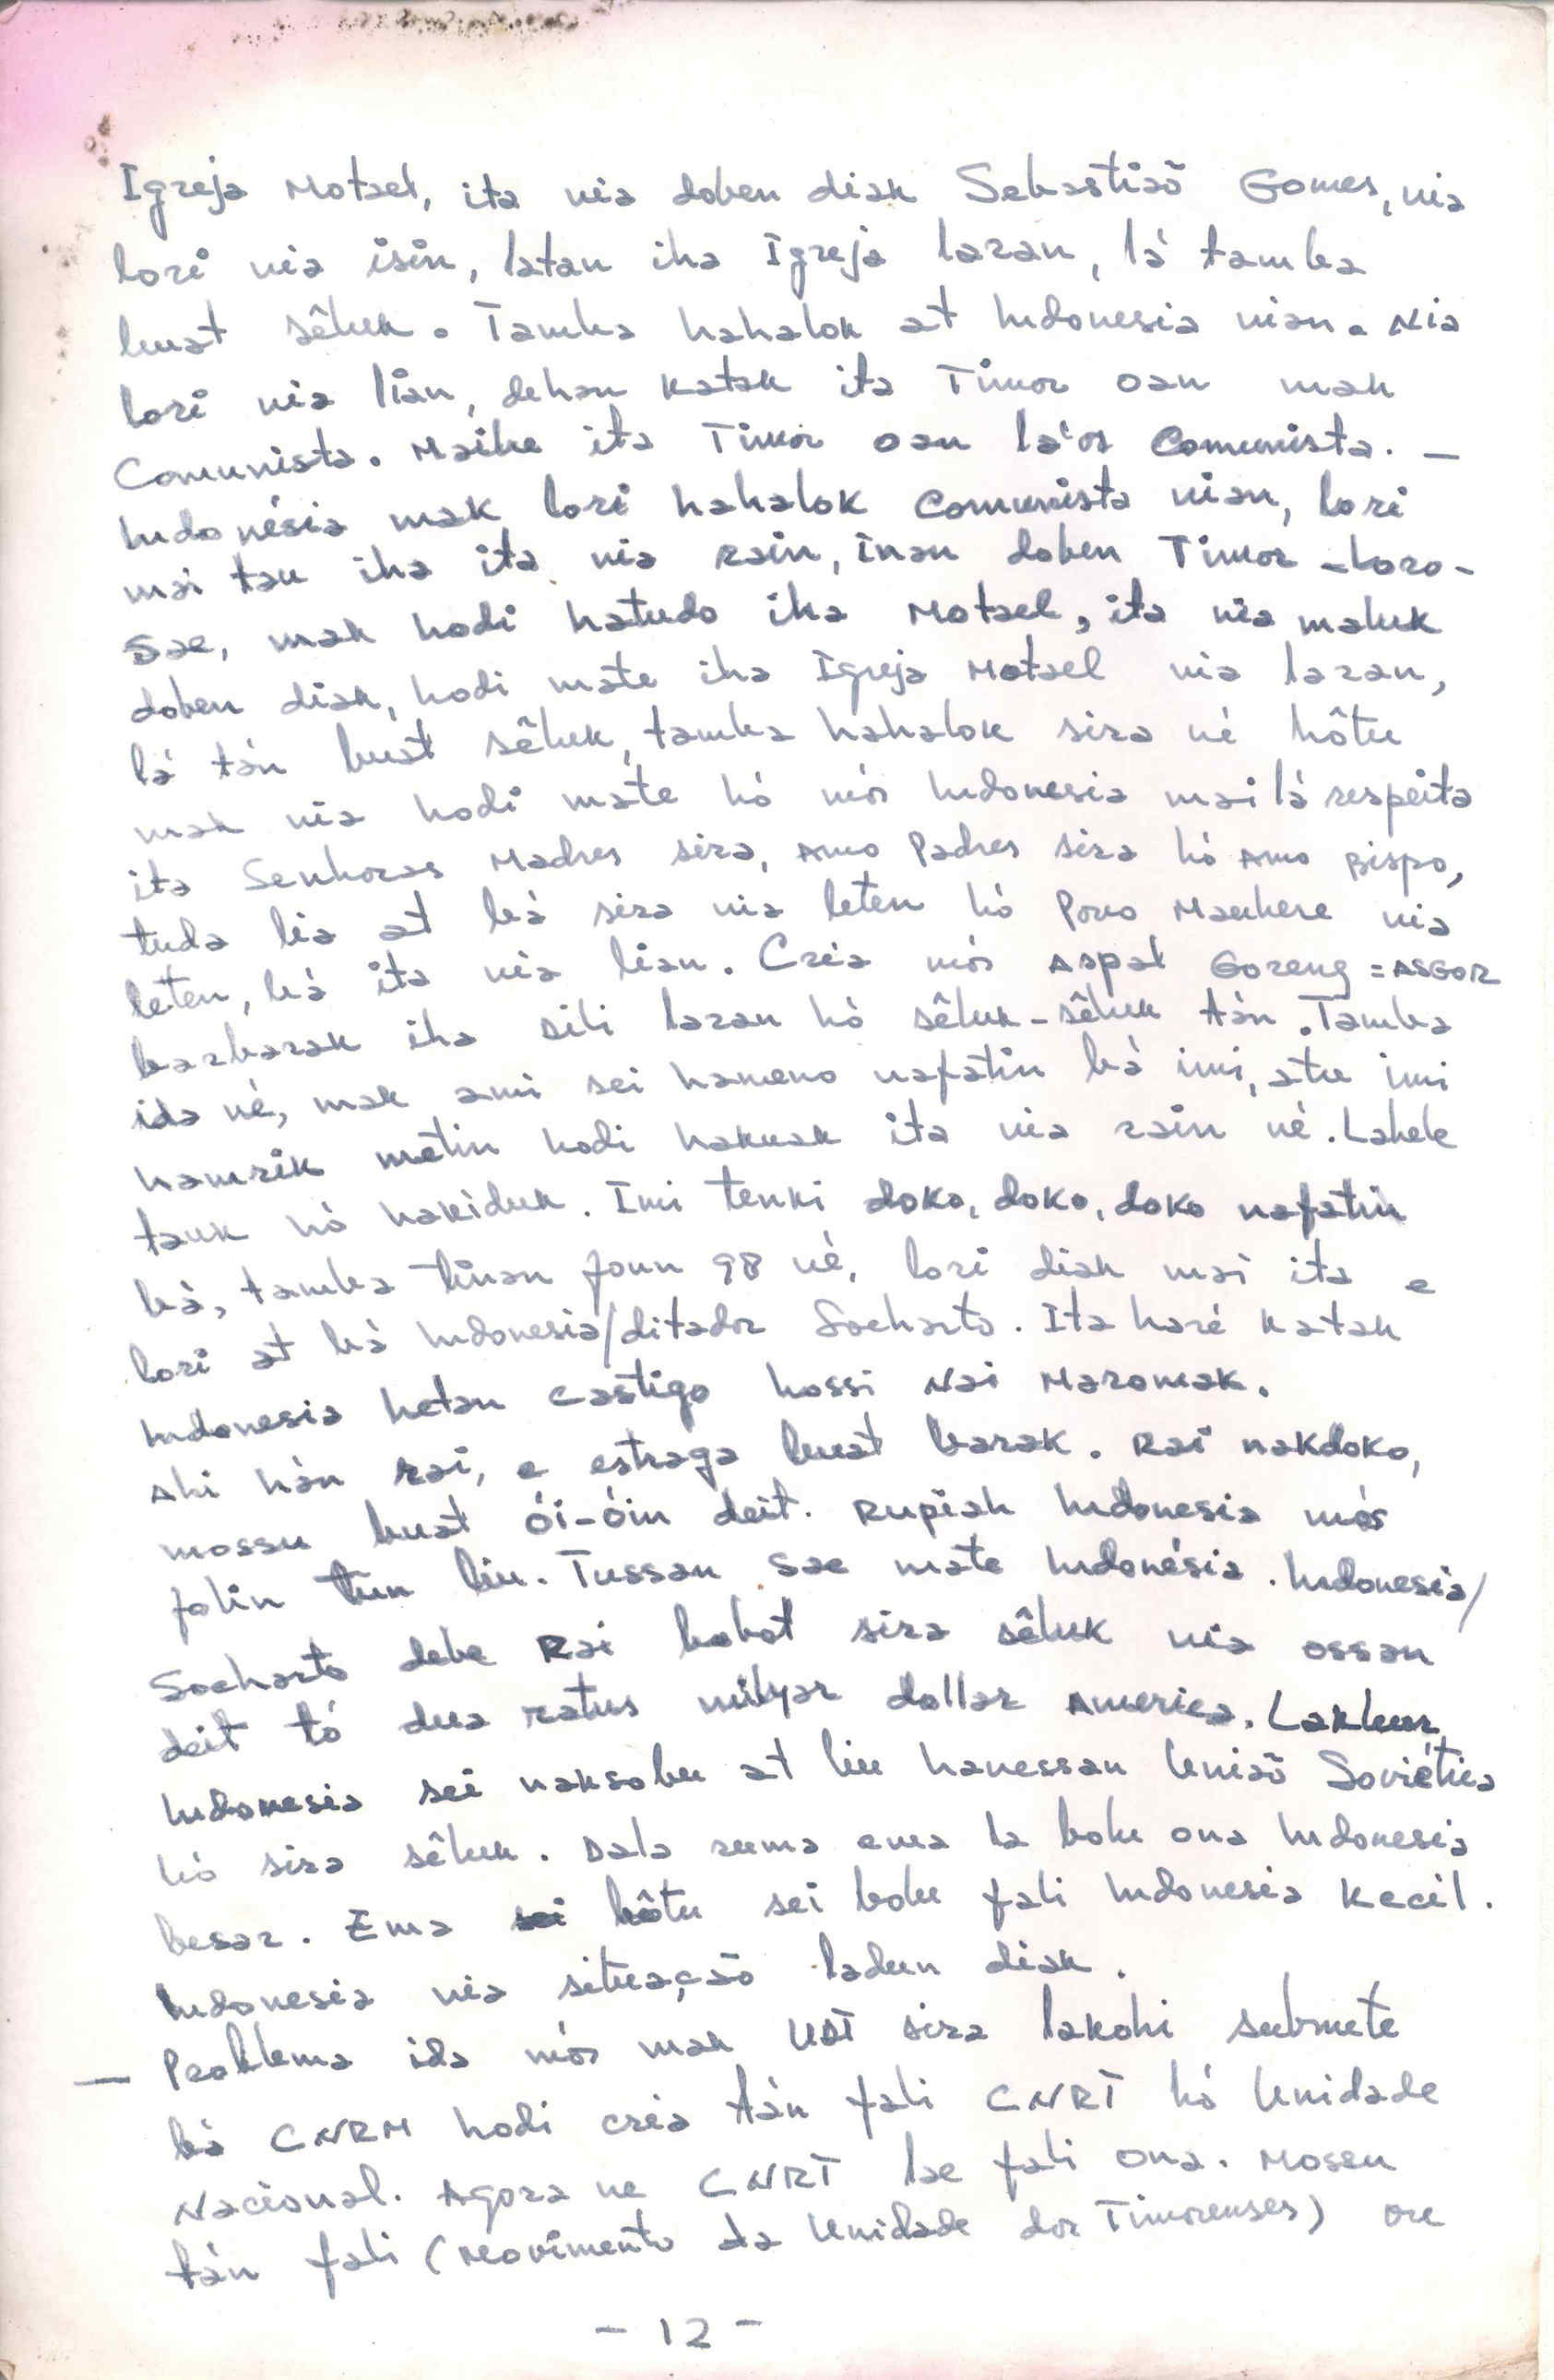 Igreja Motael, ita nia doben diak Sebastiaõ Gomes, nia
lori nia isin, latan iha Igreja laran, lá tamba
buat sêluk. Tamba hahalok at Indonesia nian. Nia
lori nia lian, dehan katak ita Timor oan mak
Comunista. Maibe ita Timor oan la'os Comunista. —
Indonésia mak lori hahalok Comunista nian, lori
mai tau iha ita nia rain, inan doben Timor-Loro-
Sae, mak hodi hatudo iha Motael, ita nia maluk
doben diak, hodi mate iha Igreja Motael nia laran,
lá tán buat sêluk, tamba hahalok sira né hôtu
mak nia hodi mate hó mós Indonesia mai lá respeita
ita Senhoras Madres sira, Amo Padres sira hó Amo Bispo,
tuda lia at bá sira nia leten hó Povo Maubere nia
leten, bá ita nia lian. Cria mós Aspal Goreng = ASGOR
barbarak iha Dili laran hó sêluk-sêluk tán. Tamba
ida né, mak ami sei hameno nafatin bá imi, atu imi
hamrik metin hodi hakuak ita nia rain né. Labele
tauk hó hakiduk. Imi tenki doko, doko, doko nafatin
bá, tamba tinan foun 98 né, lori diak mai ita e
lori at bá Indonesia/ditador Soeharto. Ita haré katak
Indonesia hetan castigo hossi Nai Maromak.
Ahi hán rai, e estraga buat barak. Rai nakdoko,
mossu buat ói-óin deit. Rupiah Indonesia mós
folin tun liu. Tussan sae mate Indonésia. Indonesia/
Soeharto debe Rai bobot sira sêluk nia ossan
deit tó dua ratus milyar dollar America. Lakleur
Indonesia sei naksobu at liu hanessan Uniaõ Soviética
hó sira sêluk. Dala ruma ema la bolu ona Indonesia
besar. Ema sei hôtu sei bolu fali Indonesia Kecil.
Indonesia nia situaçaõ ladun diak.
— Problema ida mós mak UDT sira lakohi submete
bá CNRM hodi cria tán fali CNRT hó Unidade
Nacional. Agora ne CNRT lae fali ona. Mossu
tán fali (Movimento da Unidade dos Timorenses) ou
- 12 -